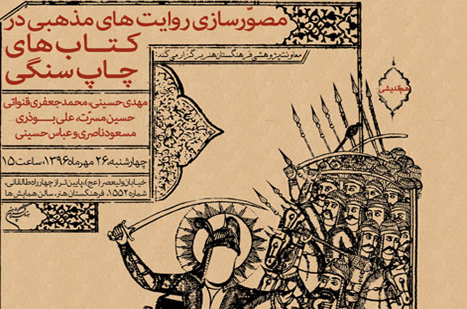 مصوّرسازی روایت‌های مذهبی در
کتاب‌های
چاپ سنگی
معاونت پژوهشی فرهنگستان هنر برگزار می‌کند:
هم‌اندیشی
مهدی حسینی، محمدجعفری قنواتی
حسین مسرّت، علی بوذری
مسعود ناصری و عباس حسینی
چهارشنبه، ۲۶ مهرماه ۱۳۹۶، ساعت ۱۵
خیابان ولیعصر (عج)، پایین‌تر از چهارراه طالقانی،
شماره ۱۵۵۲، فرهنگستان هنر، سالن همایش‌ها